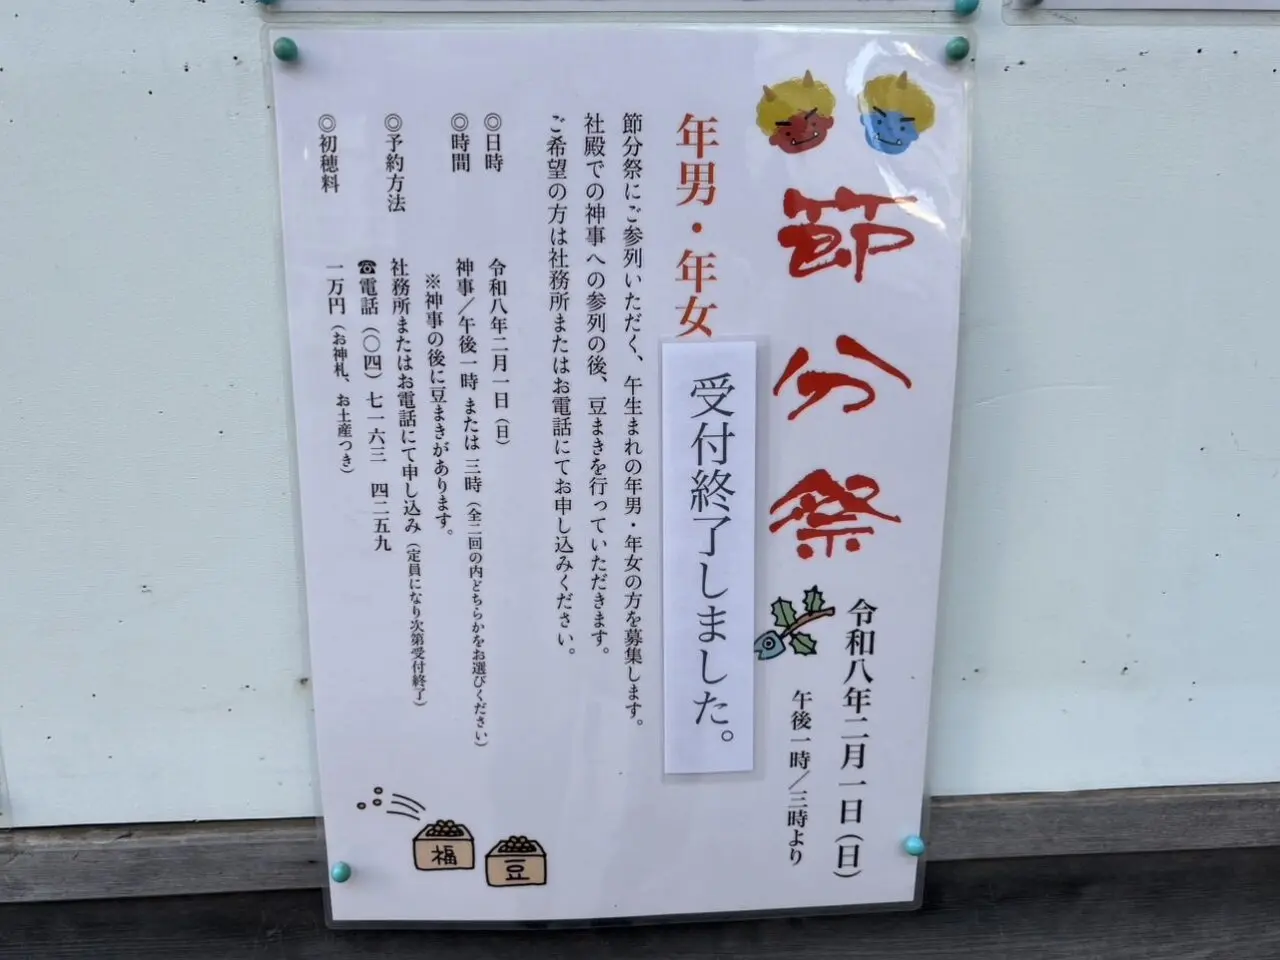 節分祭
令和八年二月一日(日)
午後一時／三時より
年男・年女
受付終了しました。
節分祭にご参列いただく、午生まれの年男・年女の方を募集します。
社殿での神事への参列の後、豆まきを行っていただきます。
ご希望の方は社務所またはお電話にてお申し込みください。
◎日時 令和八年二月一日(日)
◎時間 神事／午後一時 または 三時(全二回の内どちらかをお選びください)
※神事の後に豆まきがあります。
◎予約方法 社務所またはお電話にて申し込み(定員になり次第受付終了)
☎電話(〇四)七一六三 四二五九
◎初穂料 一万円(お神札、お土産つき)
福
豆